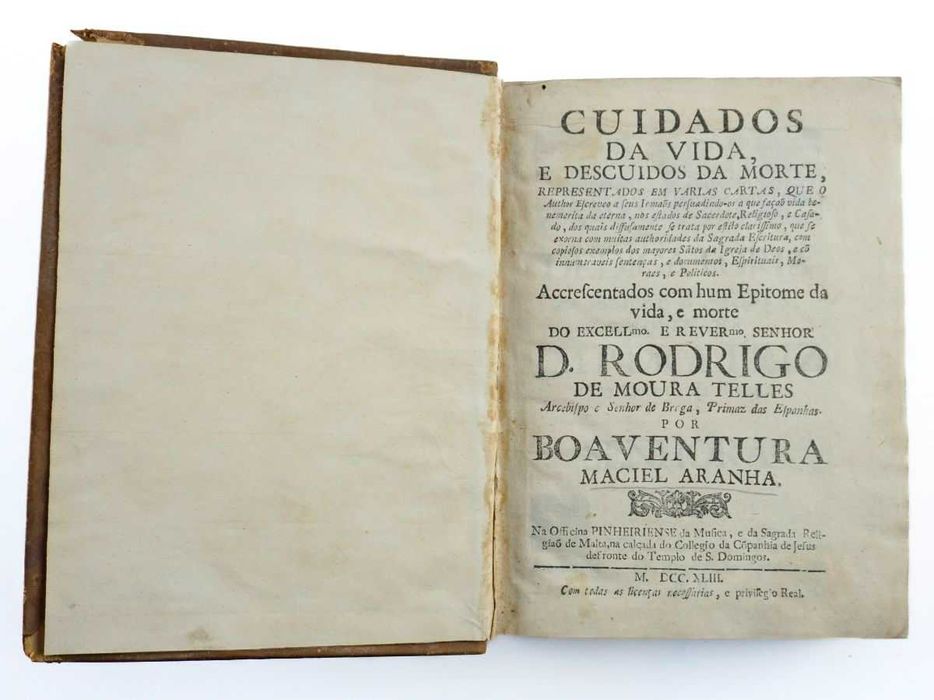 CUIDADOS
DA VIDA,
E DESCUIDOS DA MORTE,
REPRESENTADOS EM VARIAS CARTAS, QUE O
Author Escreveo a seus Irmaõs persuadindo-os a que façaõ vida be-
nemerita da eterna, nos estados de Sacerdote, Religioso, e Casa-
do, dos quais diffusamente se trata por estilo clarissimo, que se
exorna com muitas authoridades da Sagrada Escritura, com
copiosos exemplos dos mayores Sãtos da Igreja de Deos, e cõ
innumeraveis sentenças, e documentos, Espirituais, Mo-
raes, e Politicos.
Accrescentados com hum Epitome da
vida, e morte
DO EXCELLmo. E REVERmo. SENHOR
D. RODRIGO
DE MOURA TELLES
Arcebispo e Senhor de Braga, Primaz das Espanhas.
POR
BOAVENTURA
MACIEL ARANHA.
Na Officina PINHEIRIENSE da Musica, e da Sagrada Reli-
giaõ de Malta, na calçada do Collegio da Cõpanhia de Jesus
defronte do Templo de S. Domingos.
M. DCC. XLIII.
Com todas as licenças necessarias, e privilegio Real.